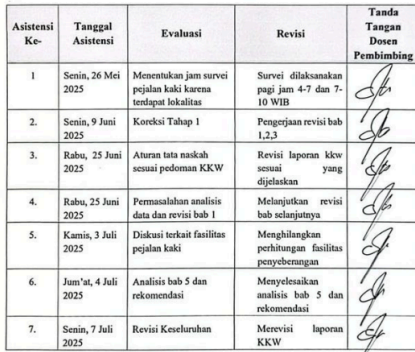 Asistensi Ke-
Tanggal Asistensi
Evaluasi
Revisi
Tanda Tangan Dosen Pembimbing
1
Senin, 26 Mei
2025
Menentukan jam survei
pejalan kaki karena
terdapat lokalitas
Survei dilaksanakan
pagi jam 4-7 dan 7-
10 WIB
2.
Senin, 9 Juni
2025
Koreksi Tahap 1
Pengerjaan revisi bab
1,2,3
3.
Rabu, 25 Juni
2025
Aturan tata naskah
sesuai pedoman KKW
Revisi laporan kkw
sesuai yang
dijelaskan
4.
Rabu, 25 Juni
2025
Permasalahan analisis
data dan revisi bab 1
Melanjutkan revisi
bab selanjutnya
5.
Kamis, 3 Juli
2025
Diskusi terkait fasilitas
pejalan kaki
Menghilangkan
perhitungan fasilitas
penyeberangan
6.
Jum'at, 4 Juli
2025
Analisis bab 5 dan
rekomendasi
Menyelesaikan
analisis bab 5 dan
rekomendasi
7.
Senin, 7 Juli
2025
Revisi Keseluruhan
Merevisi laporan
KKW